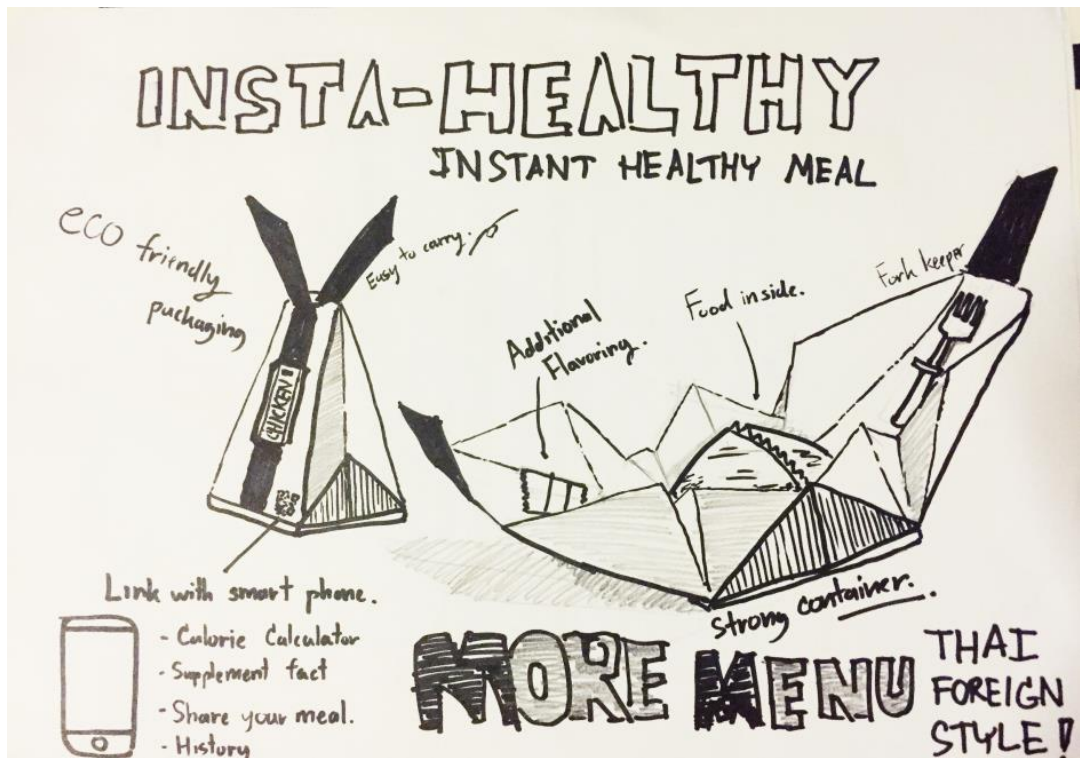 INSTA-HEALTHY
INSTANT HEALTHY MEAL
eco friendly
packaging
Easy to carry.
Additional
Flavoring.
Food inside.
Fork keeper
CHICKEN
Link with smart phone.
- Calorie Calculator
- Supplement fact
- Share your meal.
- History
strong container.
MORE MENU
THAI
FOREIGN
STYLE!